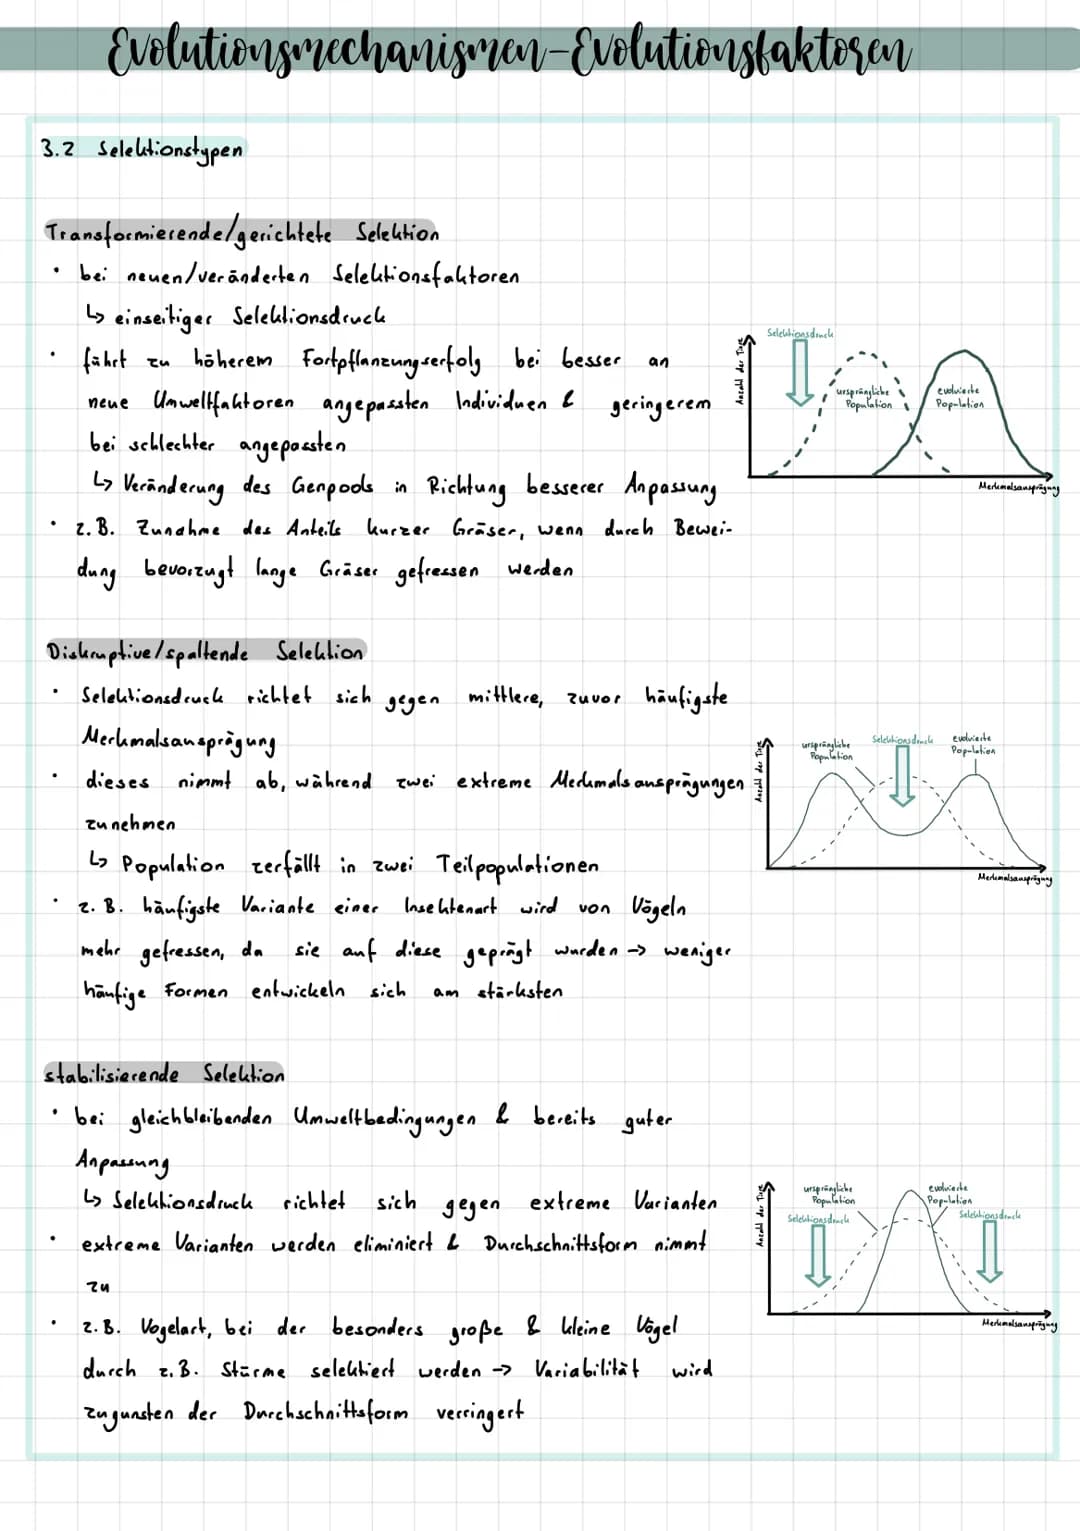 Evolutionsmechanismen-Evolutionsfaktoren
3.2 Selektionstypen
Transformierende/gerichtete Selektion
• bei neuen/veränderten Selektionsfaktoren
↳ einseitiger Selektionsdruck
• führt zu höherem Fortpflanzungserfolg bei besser an
neue Umweltfaktoren angepassten Individuen & geringerem
bei schlechter angepassten
↳ Veränderung des Genpools in Richtung besserer Anpassung
• z.B. Zunahme des Anteils kurzer Gräser, wenn durch Bewei-
dung bevorzugt lange Gräser gefressen werden
Selektionsdruck
Anzahl der Tiere
ursprüngliche
Population
evolvierte
Population
Merkmalsausprägung
Diskruptive/spaltende Selektion
• Selektionsdruck richtet sich gegen mittlere, zuvor häufigste
Merkmalsausprägung
• dieses nimmt ab, während zwei extreme Merkmalsausprägungen
zunehmen
↳ Population zerfällt in zwei Teilpopulationen
• z.B. häufigste Variante einer Insektenart wird von Vögeln
mehr gefressen, da sie auf diese geprägt wurden → weniger
häufige Formen entwickeln sich am stärksten
Anzahl der Tiere
ursprüngliche
Population
Selektionsdruck
evolvierte
Population
Merkmalsausprägung
stabilisierende Selektion
• bei gleichbleibenden Umweltbedingungen & bereits guter
Anpassung
↳ Selektionsdruck richtet sich gegen extreme Varianten
• extreme Varianten werden eliminiert & Durchschnittsform nimmt
zu
• z.B. Vogelart, bei der besonders große & kleine Vögel
durch z.B. Stürme selektiert werden → Variabilität wird
zugunsten der Durchschnittsform verringert
Anzahl der Tiere
ursprüngliche
Population
Selektionsdruck
evolvierte
Population
Selektionsdruck
Merkmalsausprägung